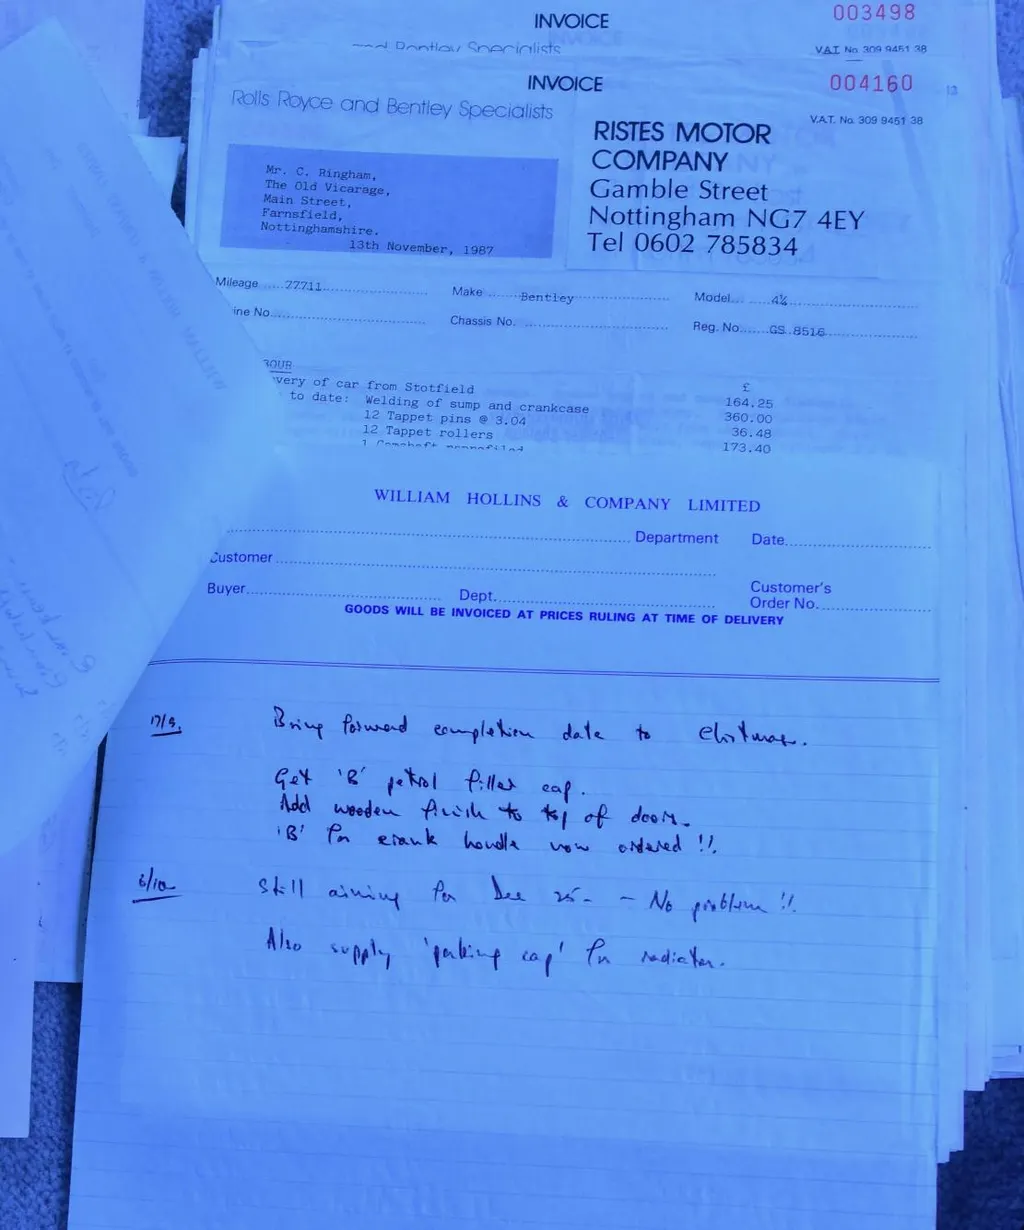 INVOICE
003498
and Bentley Specialists
V.A.T. No. 309 9451 38
INVOICE
004160
13
Rolls Royce and Bentley Specialists
V.A.T. No. 309 9451 38
RISTES MOTOR
COMPANY
Gamble Street
Nottingham NG7 4EY
Tel 0602 785834
Mr. C. Ringham,
The Old Vicarage,
Main Street,
Farnsfield,
Nottinghamshire.
13th November, 1987
Mileage 77711 Make Bentley Model 4¼
ine No. Chassis No. Reg. No. GS 8516
BOUR
very of car from Stotfield £
164.25
to date: Welding of sump and crankcase 360.00
12 Tappet pins @ 3.04 36.48
12 Tappet rollers 173.40
1 Camshaft reprofiled
WILLIAM HOLLINS & COMPANY LIMITED
Department Date
Customer
Buyer Dept. Customer's
Order No.
GOODS WILL BE INVOICED AT PRICES RULING AT TIME OF DELIVERY
17/9. Bring forward completion date to Christmas.
Get 'B' petrol filler cap.
Add wooden finish to top of doors.
'B' for crank handle now ordered !!.
6/10 Still aiming for Dec 25 - - No problem !!.
Also supply 'parking cap' for radiator.